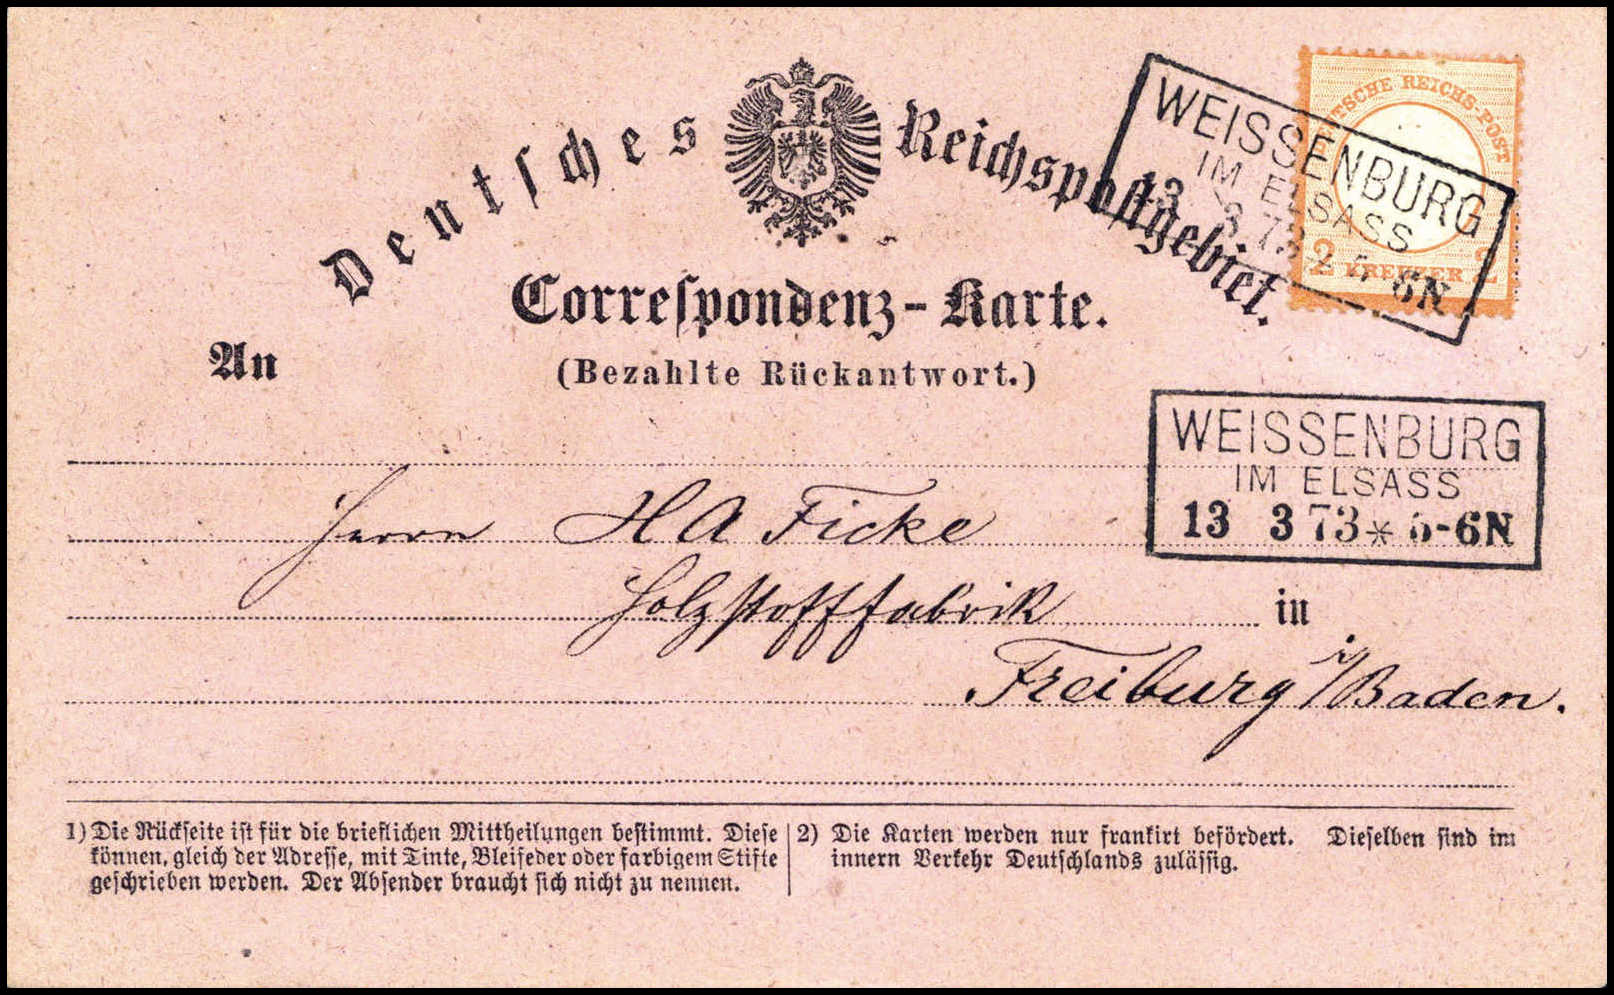 Deutsches Reichspostgebiet.
DEUTSCHE REICHS-POST
2 KREUZER 2
WEISSENBURG
IM ELSASS
13 3 73 * 5-6N
Correſpondenz-Karte.
(Bezahlte Rückantwort.)
An
WEISSENBURG
IM ELSASS
13 3 73 * 5-6N
Herrn H A Ficke
Holzstofffabrik in
Freiburg i/Baden.
1) Die Rückſeite iſt für die brieflichen Mittheilungen beſtimmt. Dieſe
können, gleich der Adreſſe, mit Tinte, Bleifeder oder farbigem Stifte
geſchrieben werden. Der Abſender braucht ſich nicht zu nennen.
2) Die Karten werden nur frankirt befördert. Dieſelben ſind im
innern Verkehr Deutſchlands zuläſſig.